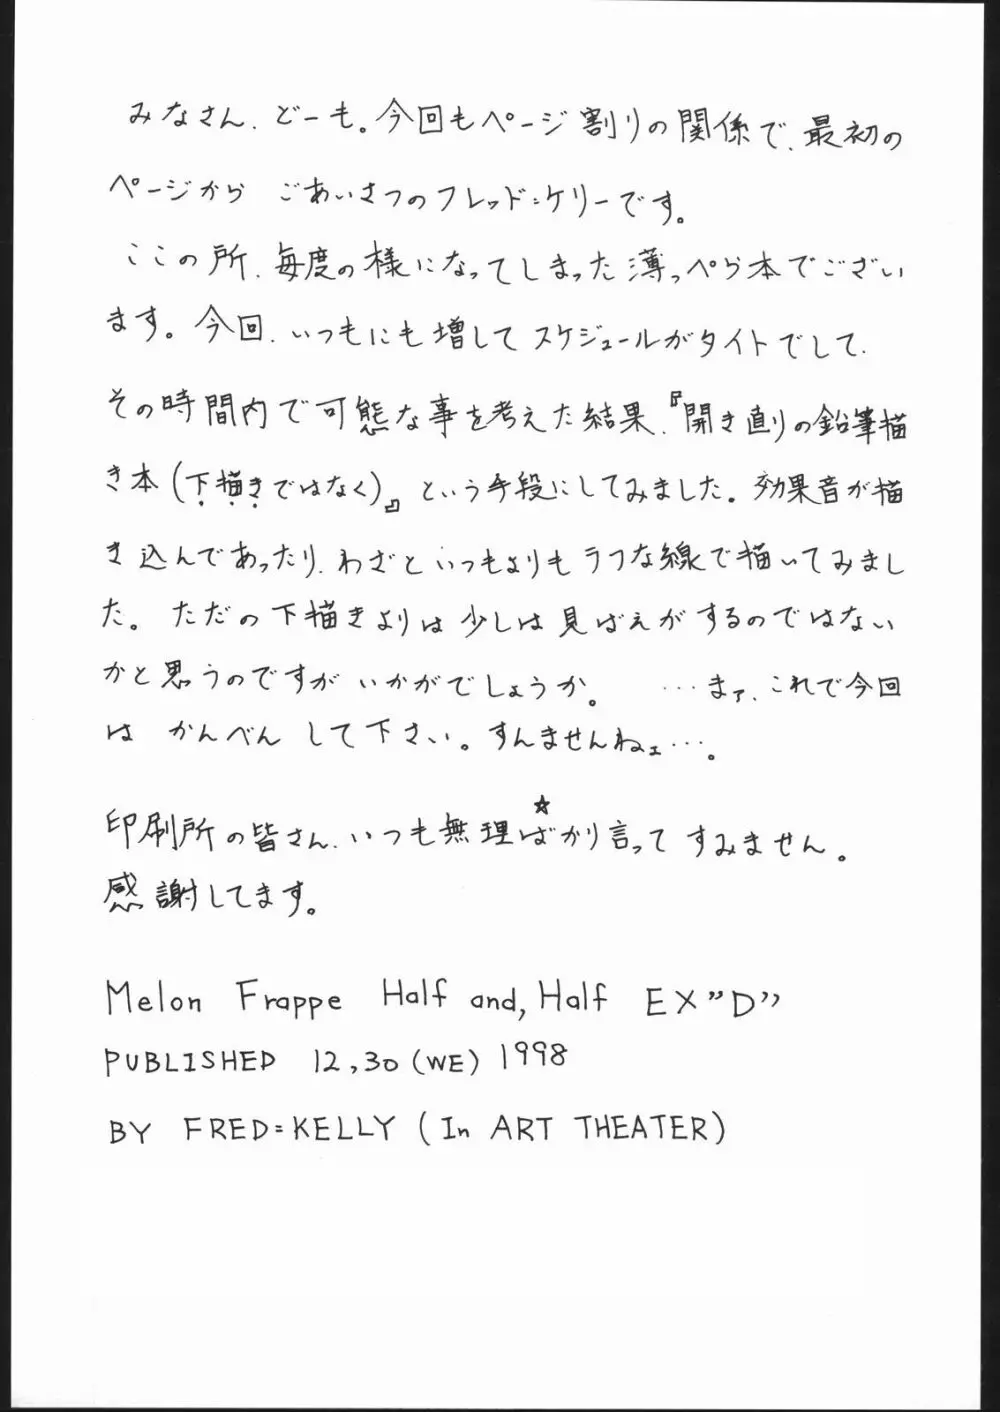 みなさん、どーも。今回もページ割りの関係で、最初の
ページから ごあいさつのフレッド=ケリーです。
ここの所、毎度の様になってしまった薄っぺら本でござい
ます。今回、いつもにも増してスケジュールがタイトでして、
その時間内で可能な事を考えた結果、『開き直りの鉛筆描
き本(下描きではなく)』という手段にしてみました。効果音が描
き込んであったり、わざといつもよりもラフな線で描いてみまし
た。ただの下描きよりは少しは見ばえがするのではない
かと思うのですがいかがでしょうか。 …まァ、これで今回
は かんべん して下さい。すんませんねェ…。
印刷所の皆さん、いつも無理ばかり言って すみません。
☆
感謝してます。
Melon Frappe Half and, Half EX"D"
PUBLISHED 12,30 (WE) 1998
BY FRED=KELLY (In ART THEATER)